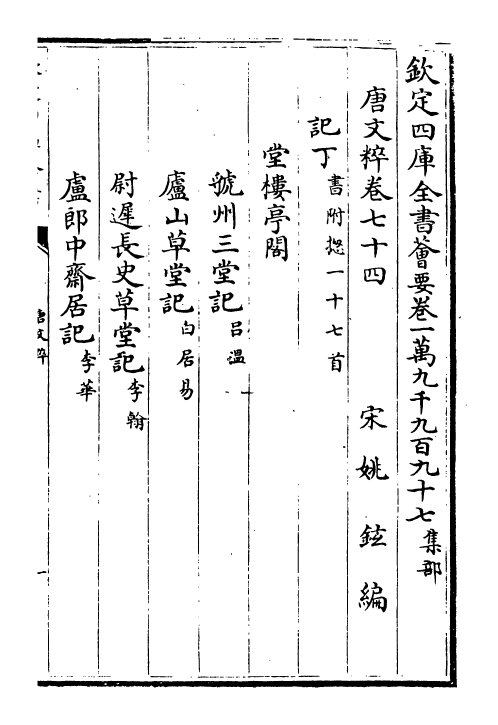 欽定四庫全書薈要卷一萬九千九百九十七集部
唐文粹卷七十四　宋姚鉉編
記丁書附揔一十七首
堂樓亭閣
虢州三堂記呂溫
廬山草堂記白居易
尉遲長史草堂記李翰
盧郎中齋居記李華
唐文粹
一